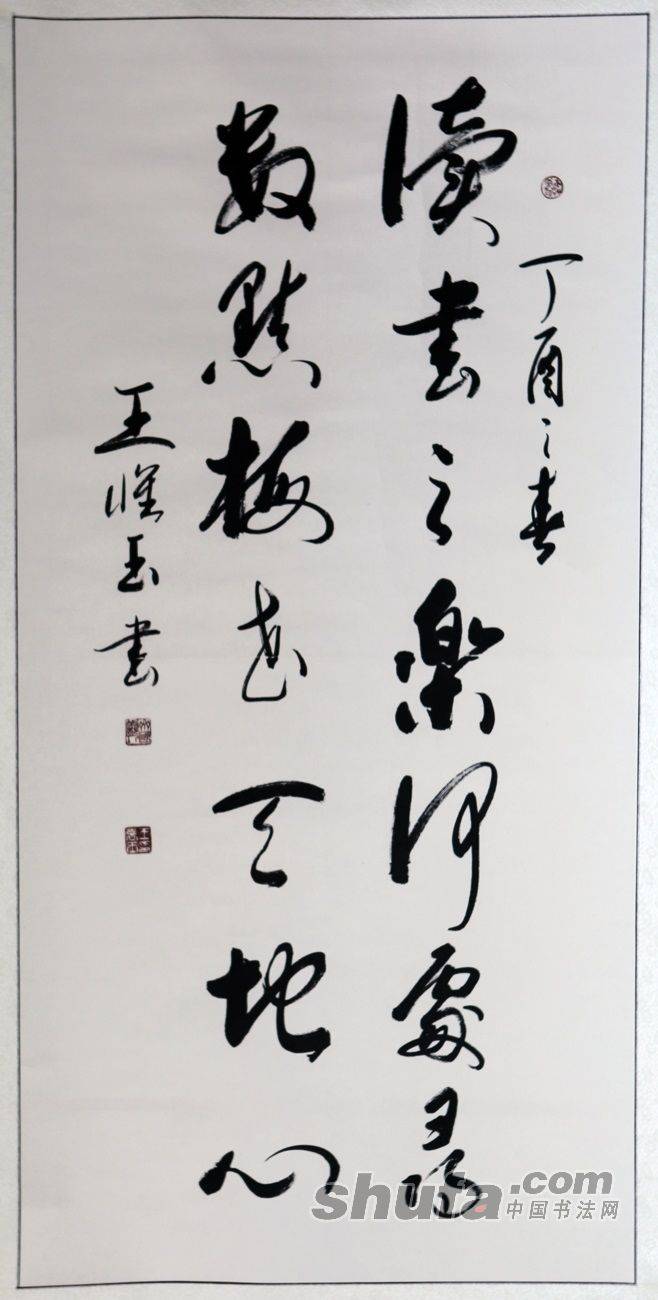 丁酉之春
讀書之樂何處尋
數點梅花天地心
王惟玉書
shufa.com
中国书法网